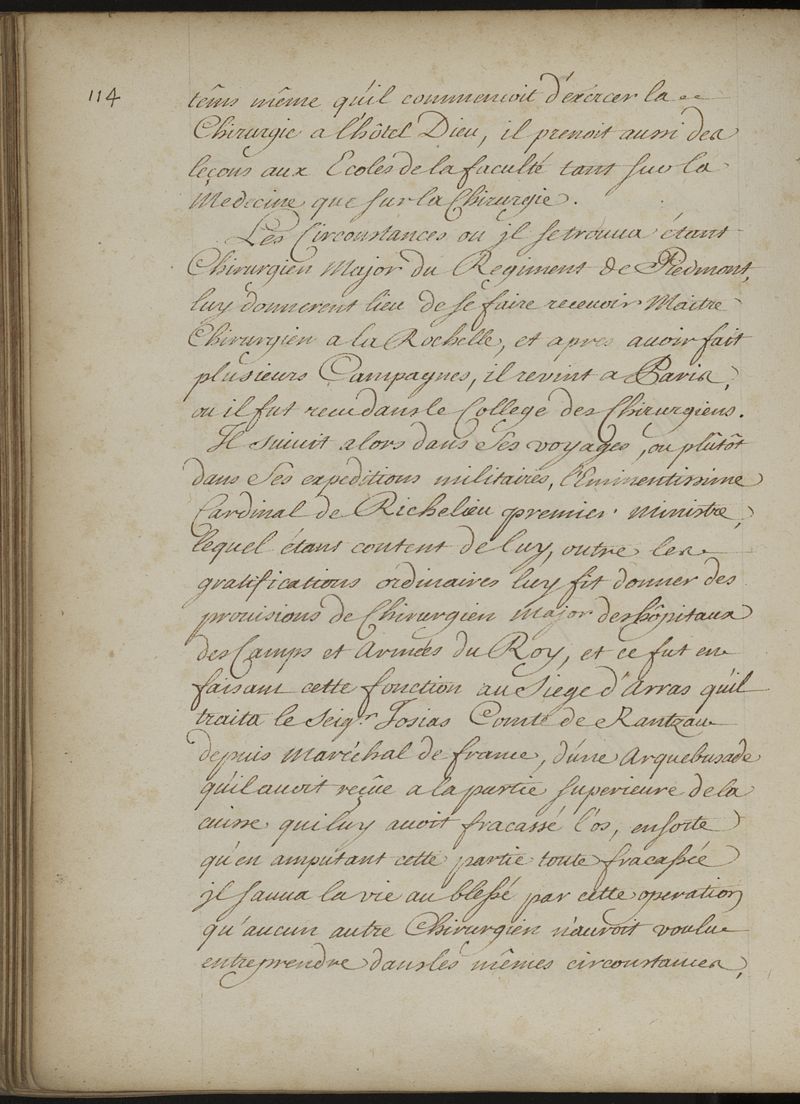 114
têms même qu'il commencoit d'exercer la
Chirurgie a l'hôtel Dieu, il prenoit aussi des
leçons aux Ecoles de la faculté tant sur la
Medecine que sur la Chirurgie.
Les Circonstances ou jl se trouua étant
Chirurgien Major du Regiment de Piedmont,
luy donnerent lieu de se faire receuoir Maitre
Chirurgien a la Rochelle, et apres auoir fait
plusieurs Campagnes, il revint a Paris,
ou il fut recu dans le College des Chirurgiens.
Il suiuit alors dans ses voyages, ou plûtôt
dans ses expeditions militaires, l'Eminentissime
Cardinal de Richelieu premier ministre,
lequel étant content de luy, outre les
gratifications ordinaires luy fit donner des
prouisions de Chirurgien Major des hôpitaux
des Camps et Armées du Roy, et ce fut en
faisant cette fonction au Siege d'Arras qu'il
traita le Seigr. Josias Comte de Rantzau
depuis Maréchal de france, d'une Arquebusade
qu'il auoit reçûe a la partie superieure de la
cuisse qui luy auoit fracassé l'os, ensorte
qu'en amputant cette partie toute fracassée
jl sauua la vie au blessé par cette operation
qu'aucun autre Chirurgien n'auroit voulu
entreprendre dans les mêmes circonstances,